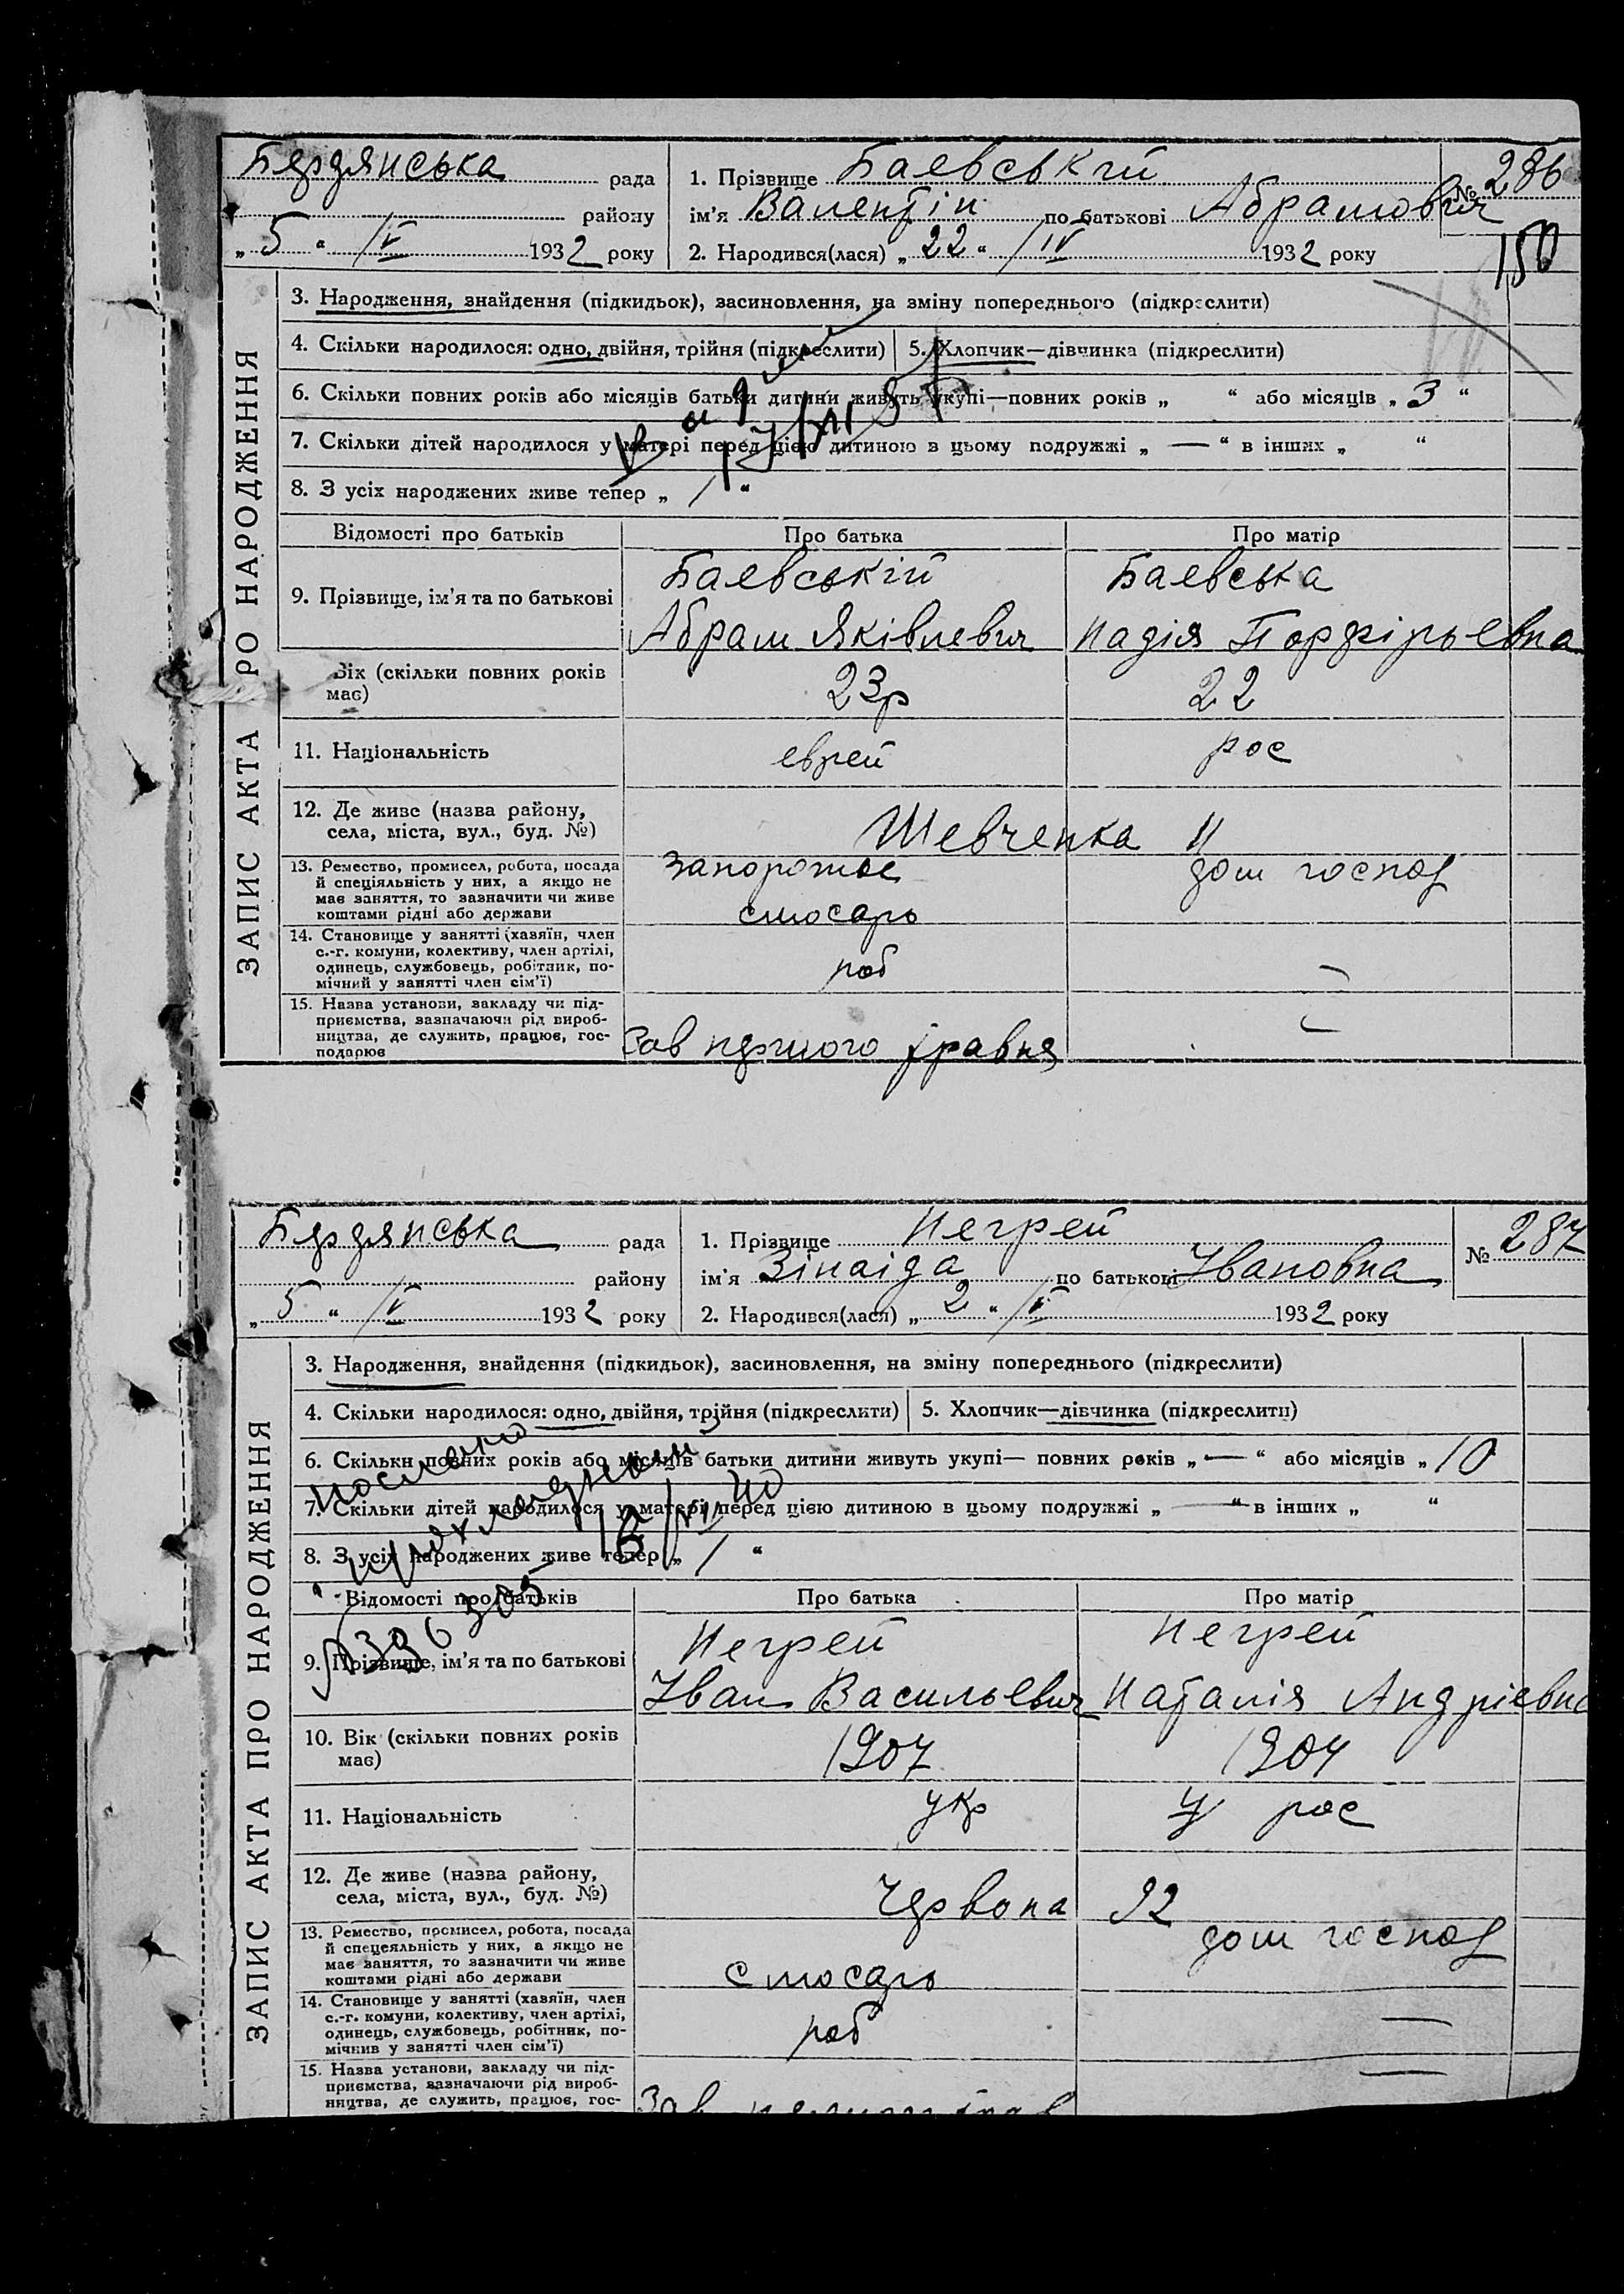 Бердянська рада
району
„ 5 “ /V 1932 року
1. Прізвище Баевській
ім'я Валентін по батькові Абрамович
2. Народився(лася) „ 22 “ /IV 1932 року
№ 286
150
ЗАПИС АКТА ПРО НАРОДЖЕННЯ
3. Народження, знайдення (підкидьок), засиновлення, на зміну попереднього (підкреслити)
4. Скільки народилося: одно, двійня, трійня (підкреслити) 5. Хлопчик—дівчинка (підкреслити)
6. Скільки повних років або місяців батьки дитини живуть укупі—повних років „ “ або місяців „ 3 “
7. Скільки дітей народилося у матері перед цією дитиною в цьому подружжі „ — “ в інших „ “
8. З усіх народжених живе тепер „ 1 “
Відомості про батьків Про батька Про матір
9. Прізвище, ім'я та по батькові
Баевській Баевська
Абрам Яківлевич Надія Порфірьевна
Вік (скільки повних років має) 23р 22
11. Національність еврей рос
12. Де живе (назва району,
села, міста, вул., буд. №) Шевченка 11
13. Ремество, промисел, робота, посада
й спеціяльність у них, а якщо не
має заняття, то зазначити чи живе
коштами рідні або держави
слюсарь
дом господ
14. Становище у занятті (хазяїн, член
с.-г. комуни, колективу, член артілі,
одинець, службовець, робітник, по-
мічний у занятті член сім'ї)
роб —
15. Назва установи, закладу чи під-
приємства, зазначаючи рід вироб-
ництва, де служить, працює, гос-
подарює
Зав першого травня —
Бердянська рада
району
„ 5 “ /V 1932 року
1. Прізвище Негрей
ім'я Зінаіда по батькові Івановна
2. Народився(лася) „ 2 “ /V 1932 року
№ 287
ЗАПИС АКТА ПРО НАРОДЖЕННЯ
3. Народження, знайдення (підкидьок), засиновлення, на зміну попереднього (підкреслити)
4. Скільки народилося: одно, двійня, трійня (підкреслити) 5. Хлопчик—дівчинка (підкреслити)
6. Скільки повних років або місяців батьки дитини живуть укупі— повних років „ — “ або місяців „ 10
7. Скільки дітей народилося у матері перед цією дитиною в цьому подружжі „ — “ в інших „ “
8. З усіх народжених живе тепер „ 1 “
Відомості про батьків Про батька Про матір
9. Прізвище, ім'я та по батькові
Негрей Негрей
Іван Васильевич Наталія Андріевна
10. Вік (скільки повних років
має) 1907 1904
11. Національність укр рос
12. Де живе (назва району,
села, міста, вул., буд. №) Червона 92
13. Ремество, промисел, робота, посада
й спецеяльність у них, а якщо не
має заняття, то зазначити чи живе
коштами рідні або держави
слюсарь дом господ
14. Становище у занятті (хазяїн, член
с.-г. комуни, колективу, член артілі,
одинець, службовець, робітник, по-
мічнив у занятті член сім'ї)
роб —
15. Назва установи, закладу чи під-
приємства, зазначаючи рід вироб-
ництва, де служить, працює, гос-
Зав —